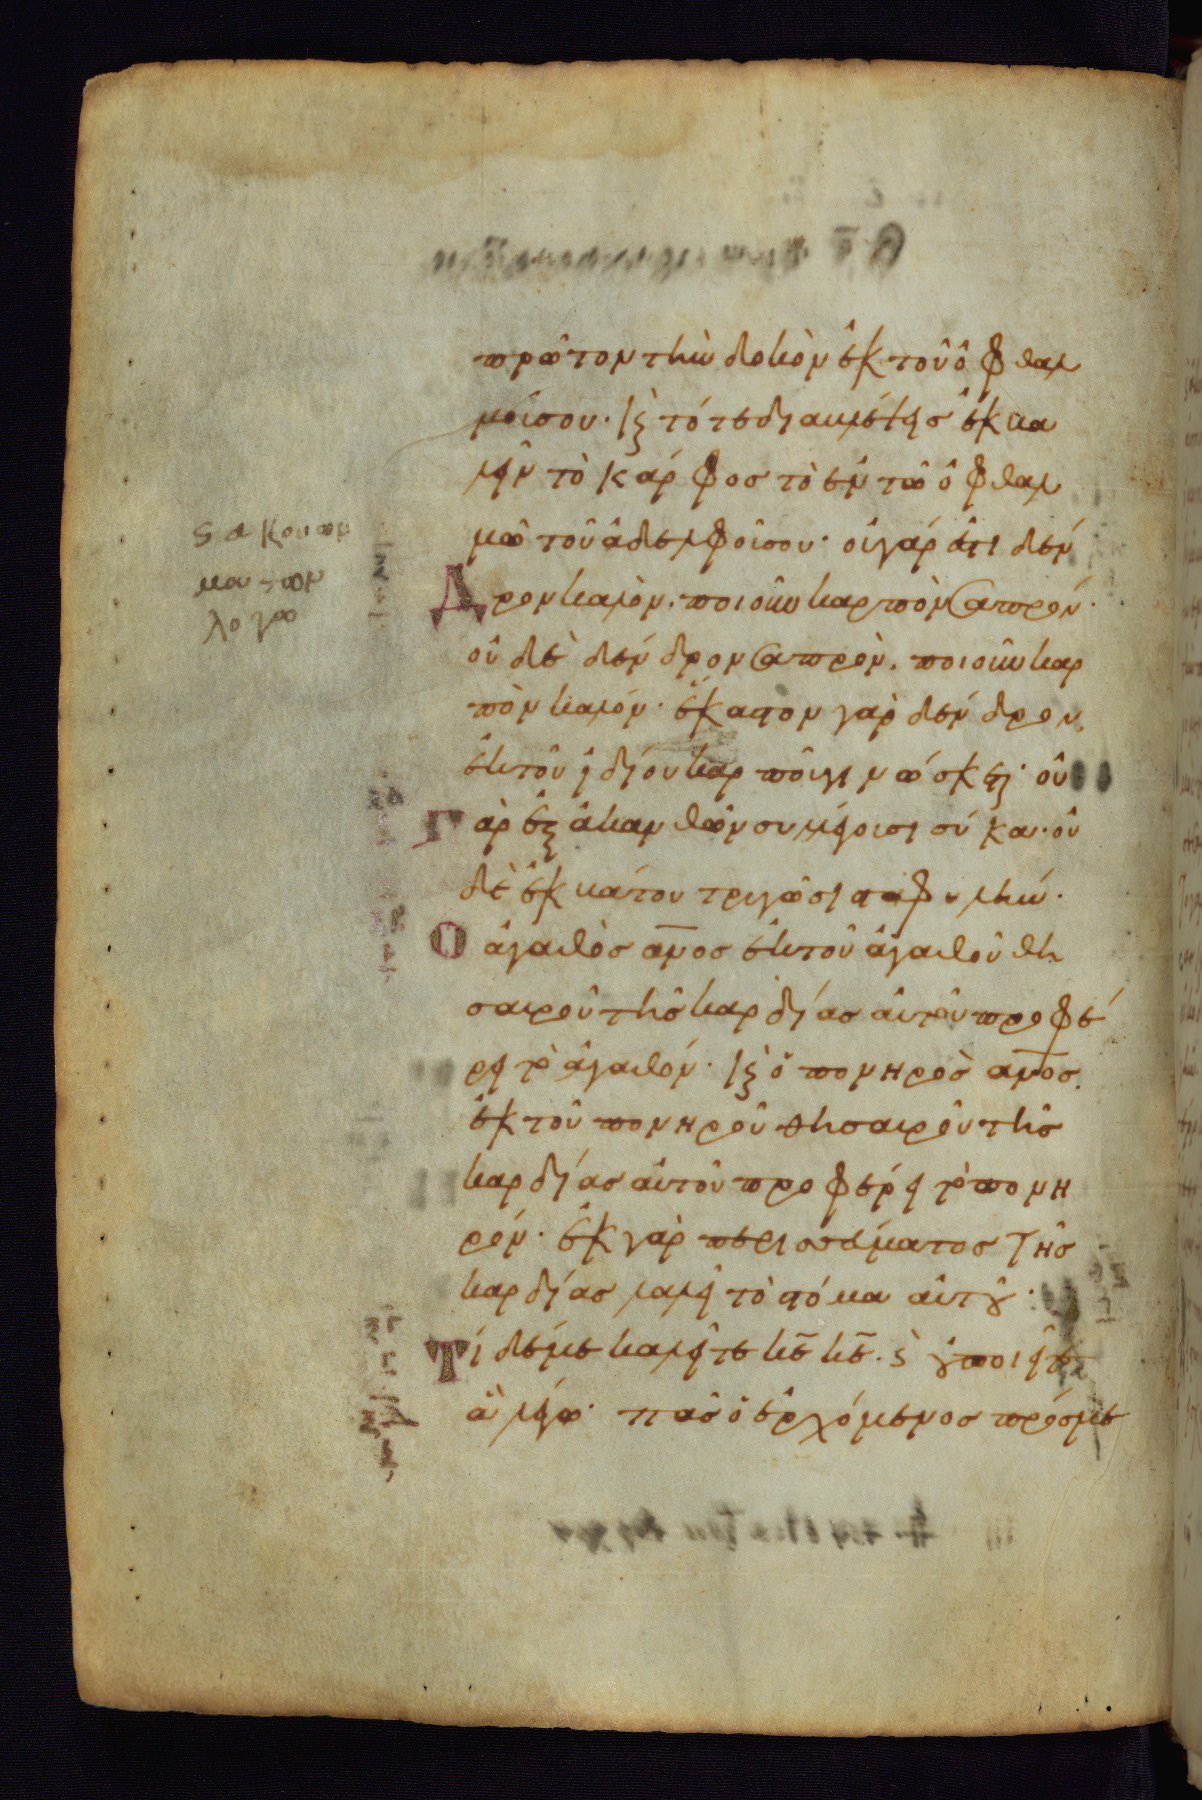 πρῶτον τὴν δοκὸν ἐκ τοῦ ὀφθαλ
μοῦ σου· καὶ τότε διαβλέψεις ἐκβα
λεῖν τὸ κάρφος τὸ ἐν τῷ ὀφθαλ
μῷ τοῦ ἀδελφοῦ σου· οὐ γάρ ἐστι δέν
δρον καλὸν. ποιοῦν καρπὸν σαπρόν·
οὐδὲ δένδρον σαπρὸν. ποιοῦν καρ
πὸν καλόν· ἕκαστον γὰρ δένδρον
ἐκ τοῦ ἰδίου καρποῦ γινώσκεται· οὐ
γὰρ ἐξ ἀκανθῶν συλλέγουσι σύκα· οὐ
δὲ ἐκ βάτου τρυγῶσι σταφυλήν·
Ὁ ἀγαθὸς ἄνος ἐκ τοῦ ἀγαθοῦ θη
σαυροῦ τῆς καρδίας αὐτοῦ προφέ
ρει τὸ ἀγαθόν· καὶ ὁ πονηρὸς ἄνος
ἐκ τοῦ πονηροῦ θησαυροῦ τῆς
καρδίας αὐτοῦ προφέρει τὸ πονη
ρόν· ἐκ γὰρ περισσεύματος τῆς
καρδίας λαλεῖ τὸ στόμα αὐτοῦ·
Τί δέ με καλεῖτε κε κε. καὶ οὐ ποιεῖτε
ἃ λέγω· πᾶς ὁ ἐρχόμενος πρός με